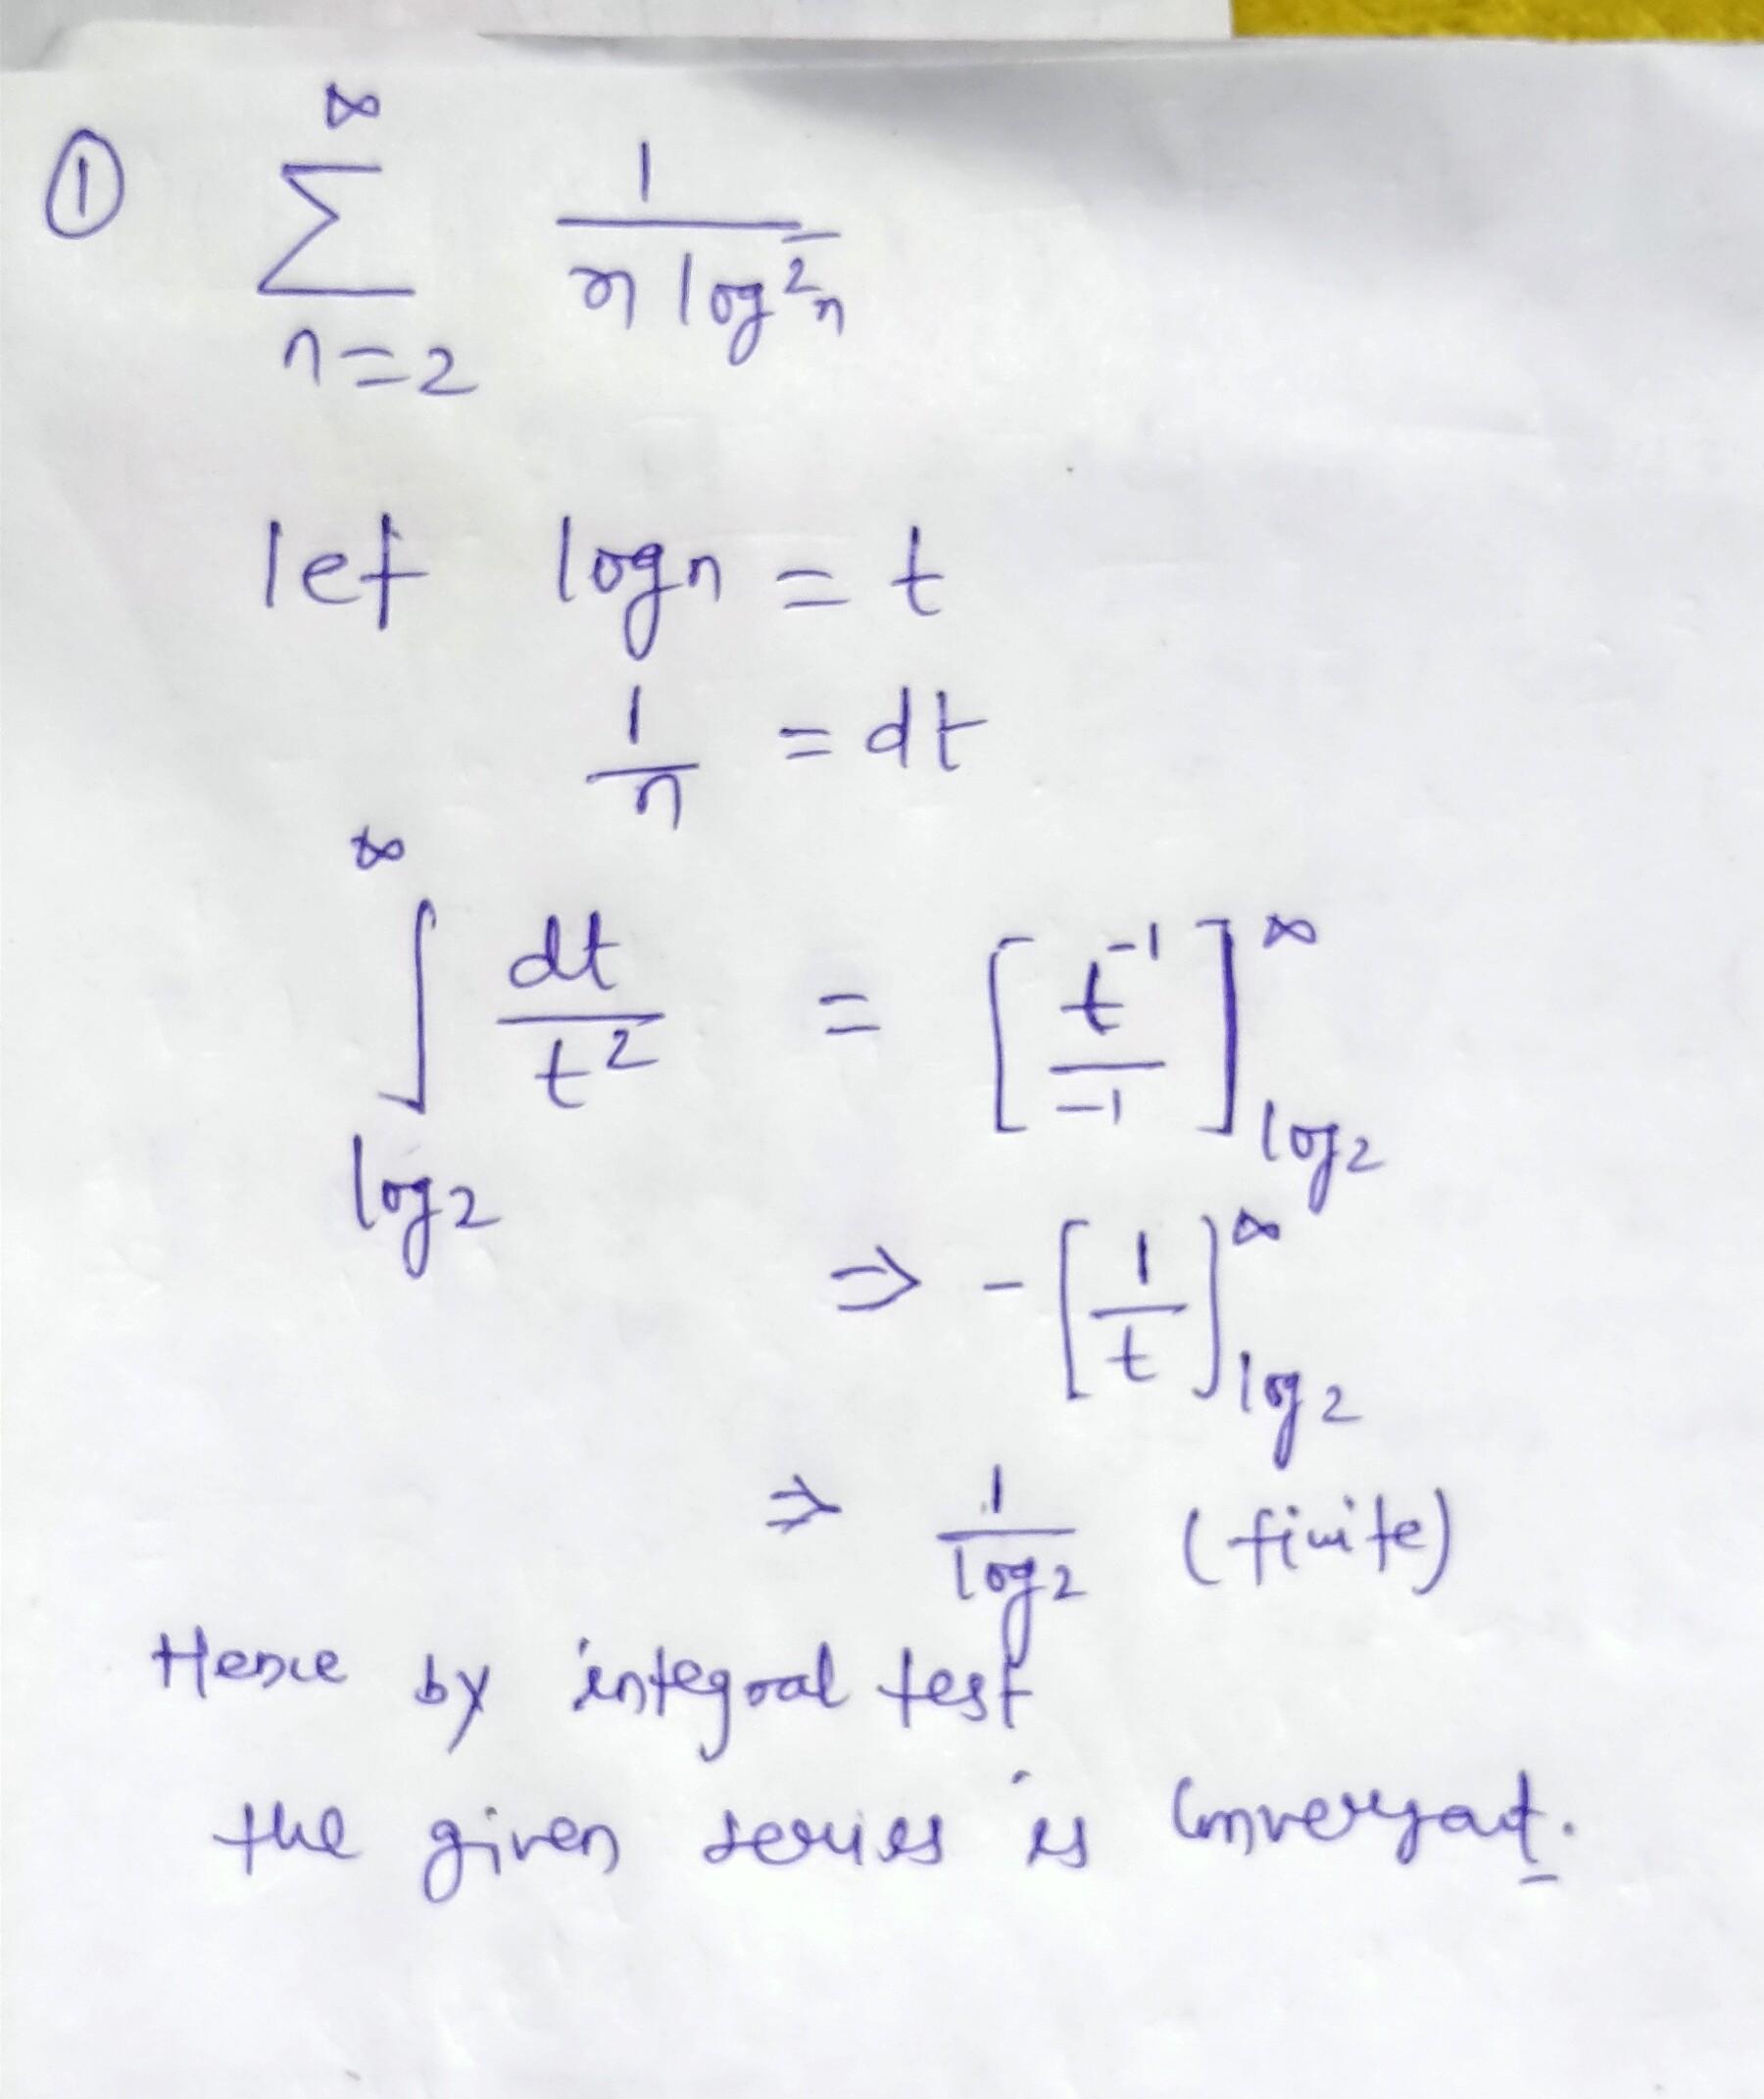 ① ∞
∑ 1 / (n log²n)
n=2
let logn = t
1/n = dt
∞
∫ dt/t² = [t⁻¹/-1]^∞_log2
log2
⇒ -[1/t]^∞_log2
⇒ 1/log2 (finite)
Hence by integral test
the given series is Convergent.